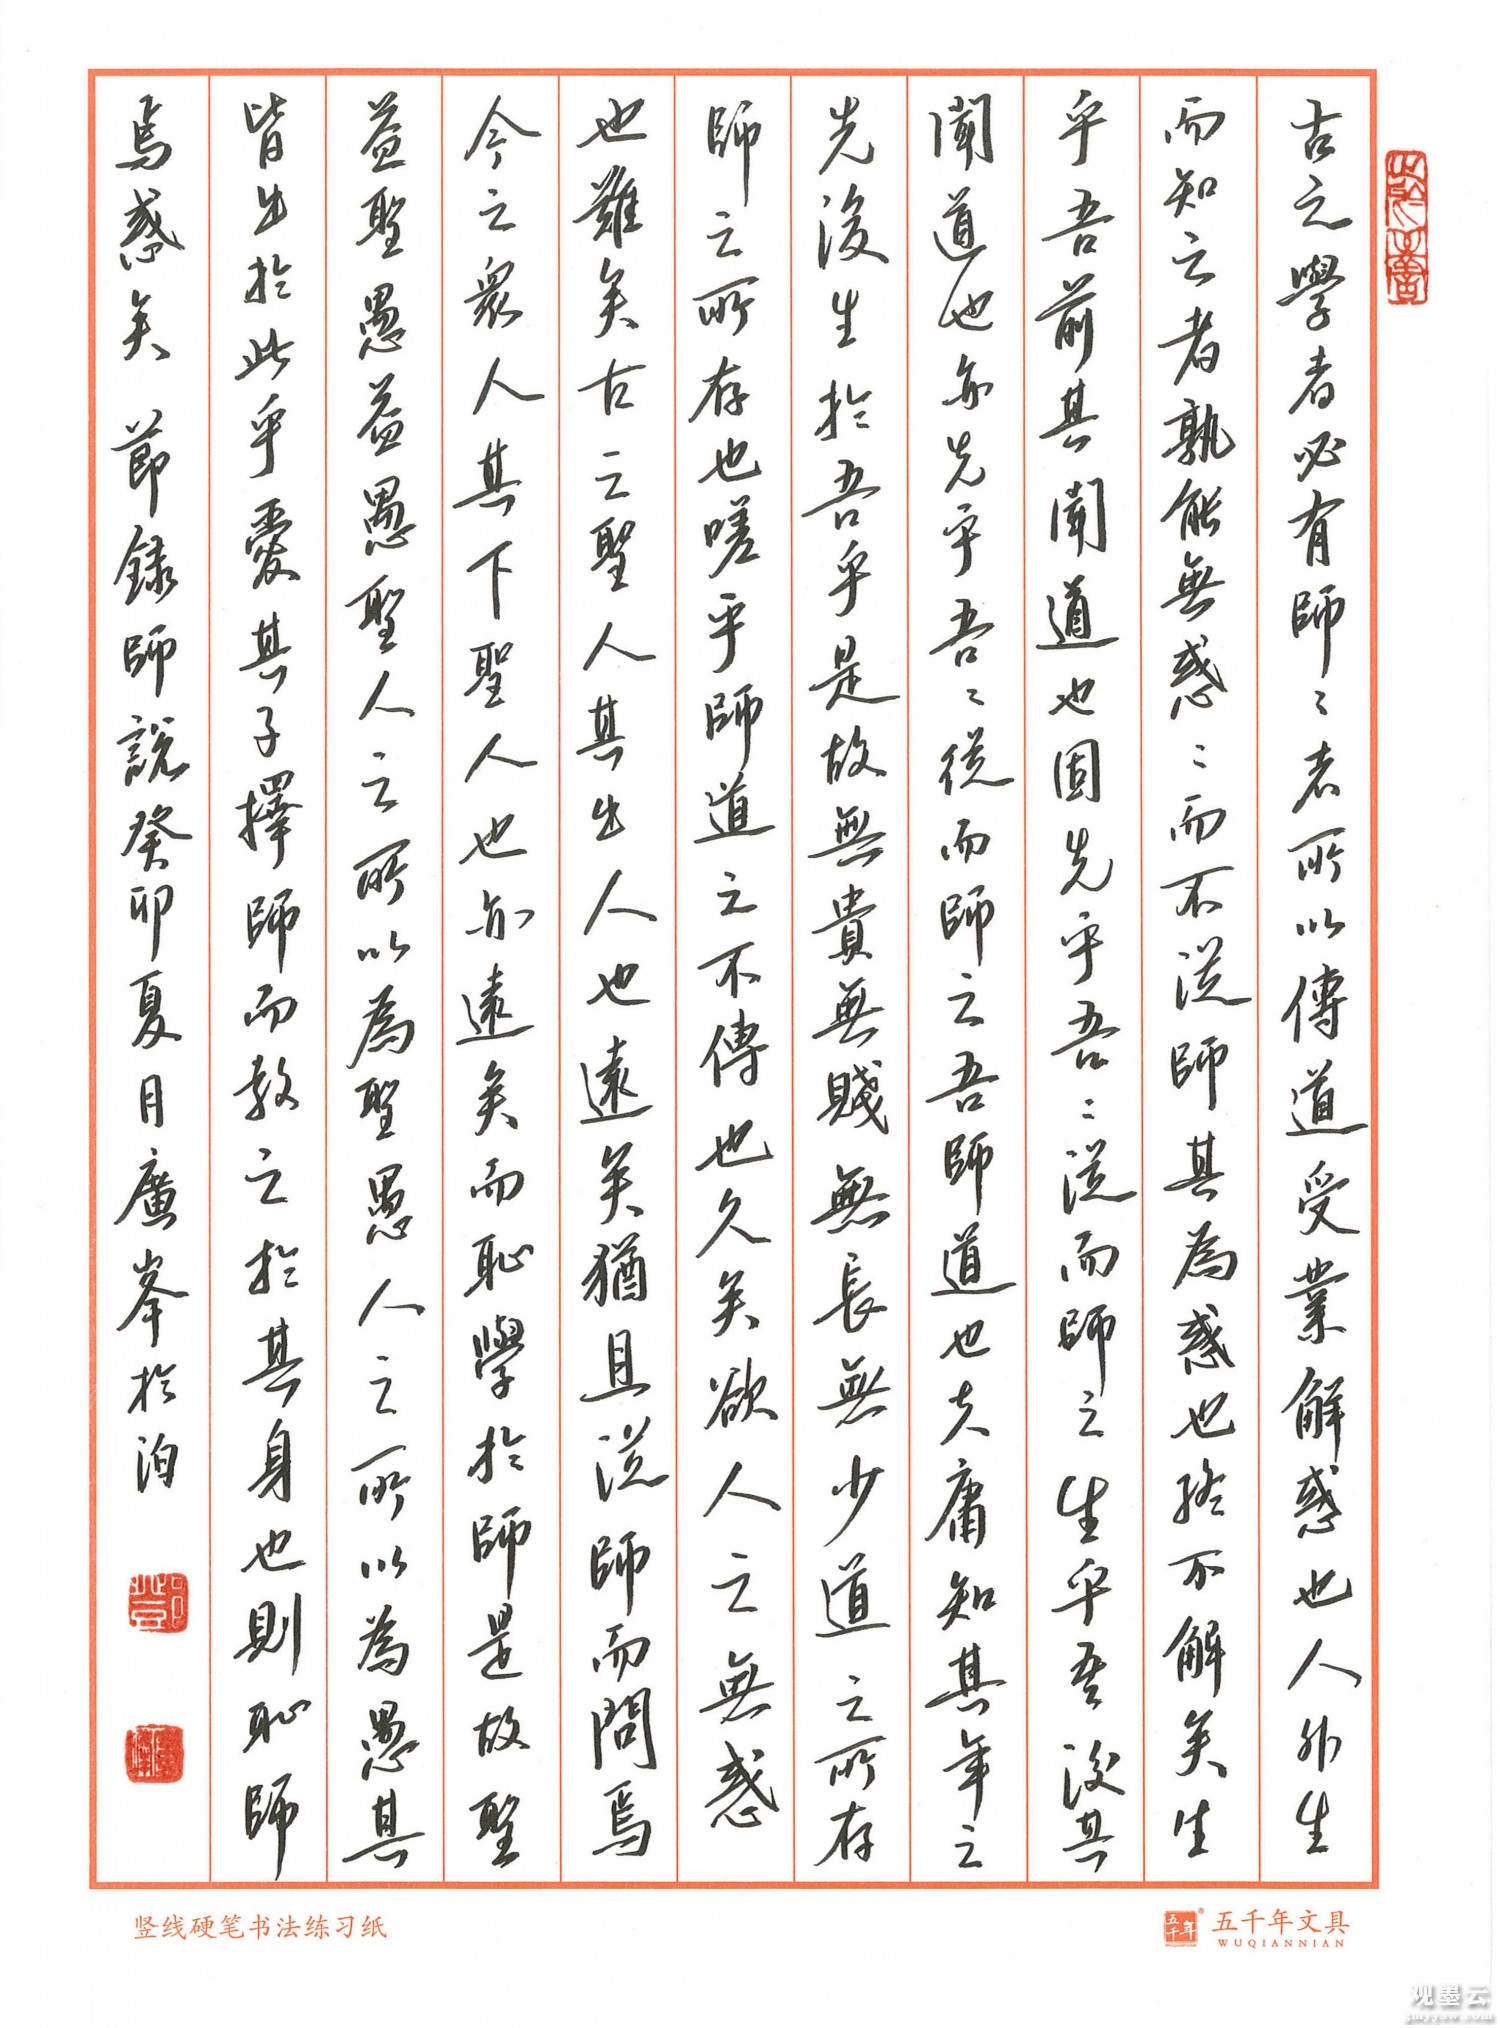 古之學者必有師〻者所以傳道受業解惑也人非生
而知之者孰能無惑〻而不從師其為惑也終不解矣生
乎吾前其聞道也固先乎吾〻從而師之生乎吾後其
聞道也亦先乎吾〻從而師之吾師道也夫庸知其年之
先後生於吾乎是故無貴無賤無長無少道之所存
師之所存也嗟乎師道之不傳也久矣欲人之無惑
也難矣古之聖人其出人也遠矣猶且從師而問焉
今之眾人其下聖人也亦遠矣而恥學於師是故聖
益聖愚益愚聖人之所以為聖愚人之所以為愚其
皆出於此乎愛其子擇師而教之於其身也則恥師
焉惑矣 節錄師說癸卯夏月廣峯於泊
竖线硬笔书法练习纸
五千年
五千年文具
WUQIANNIAN
观墨云